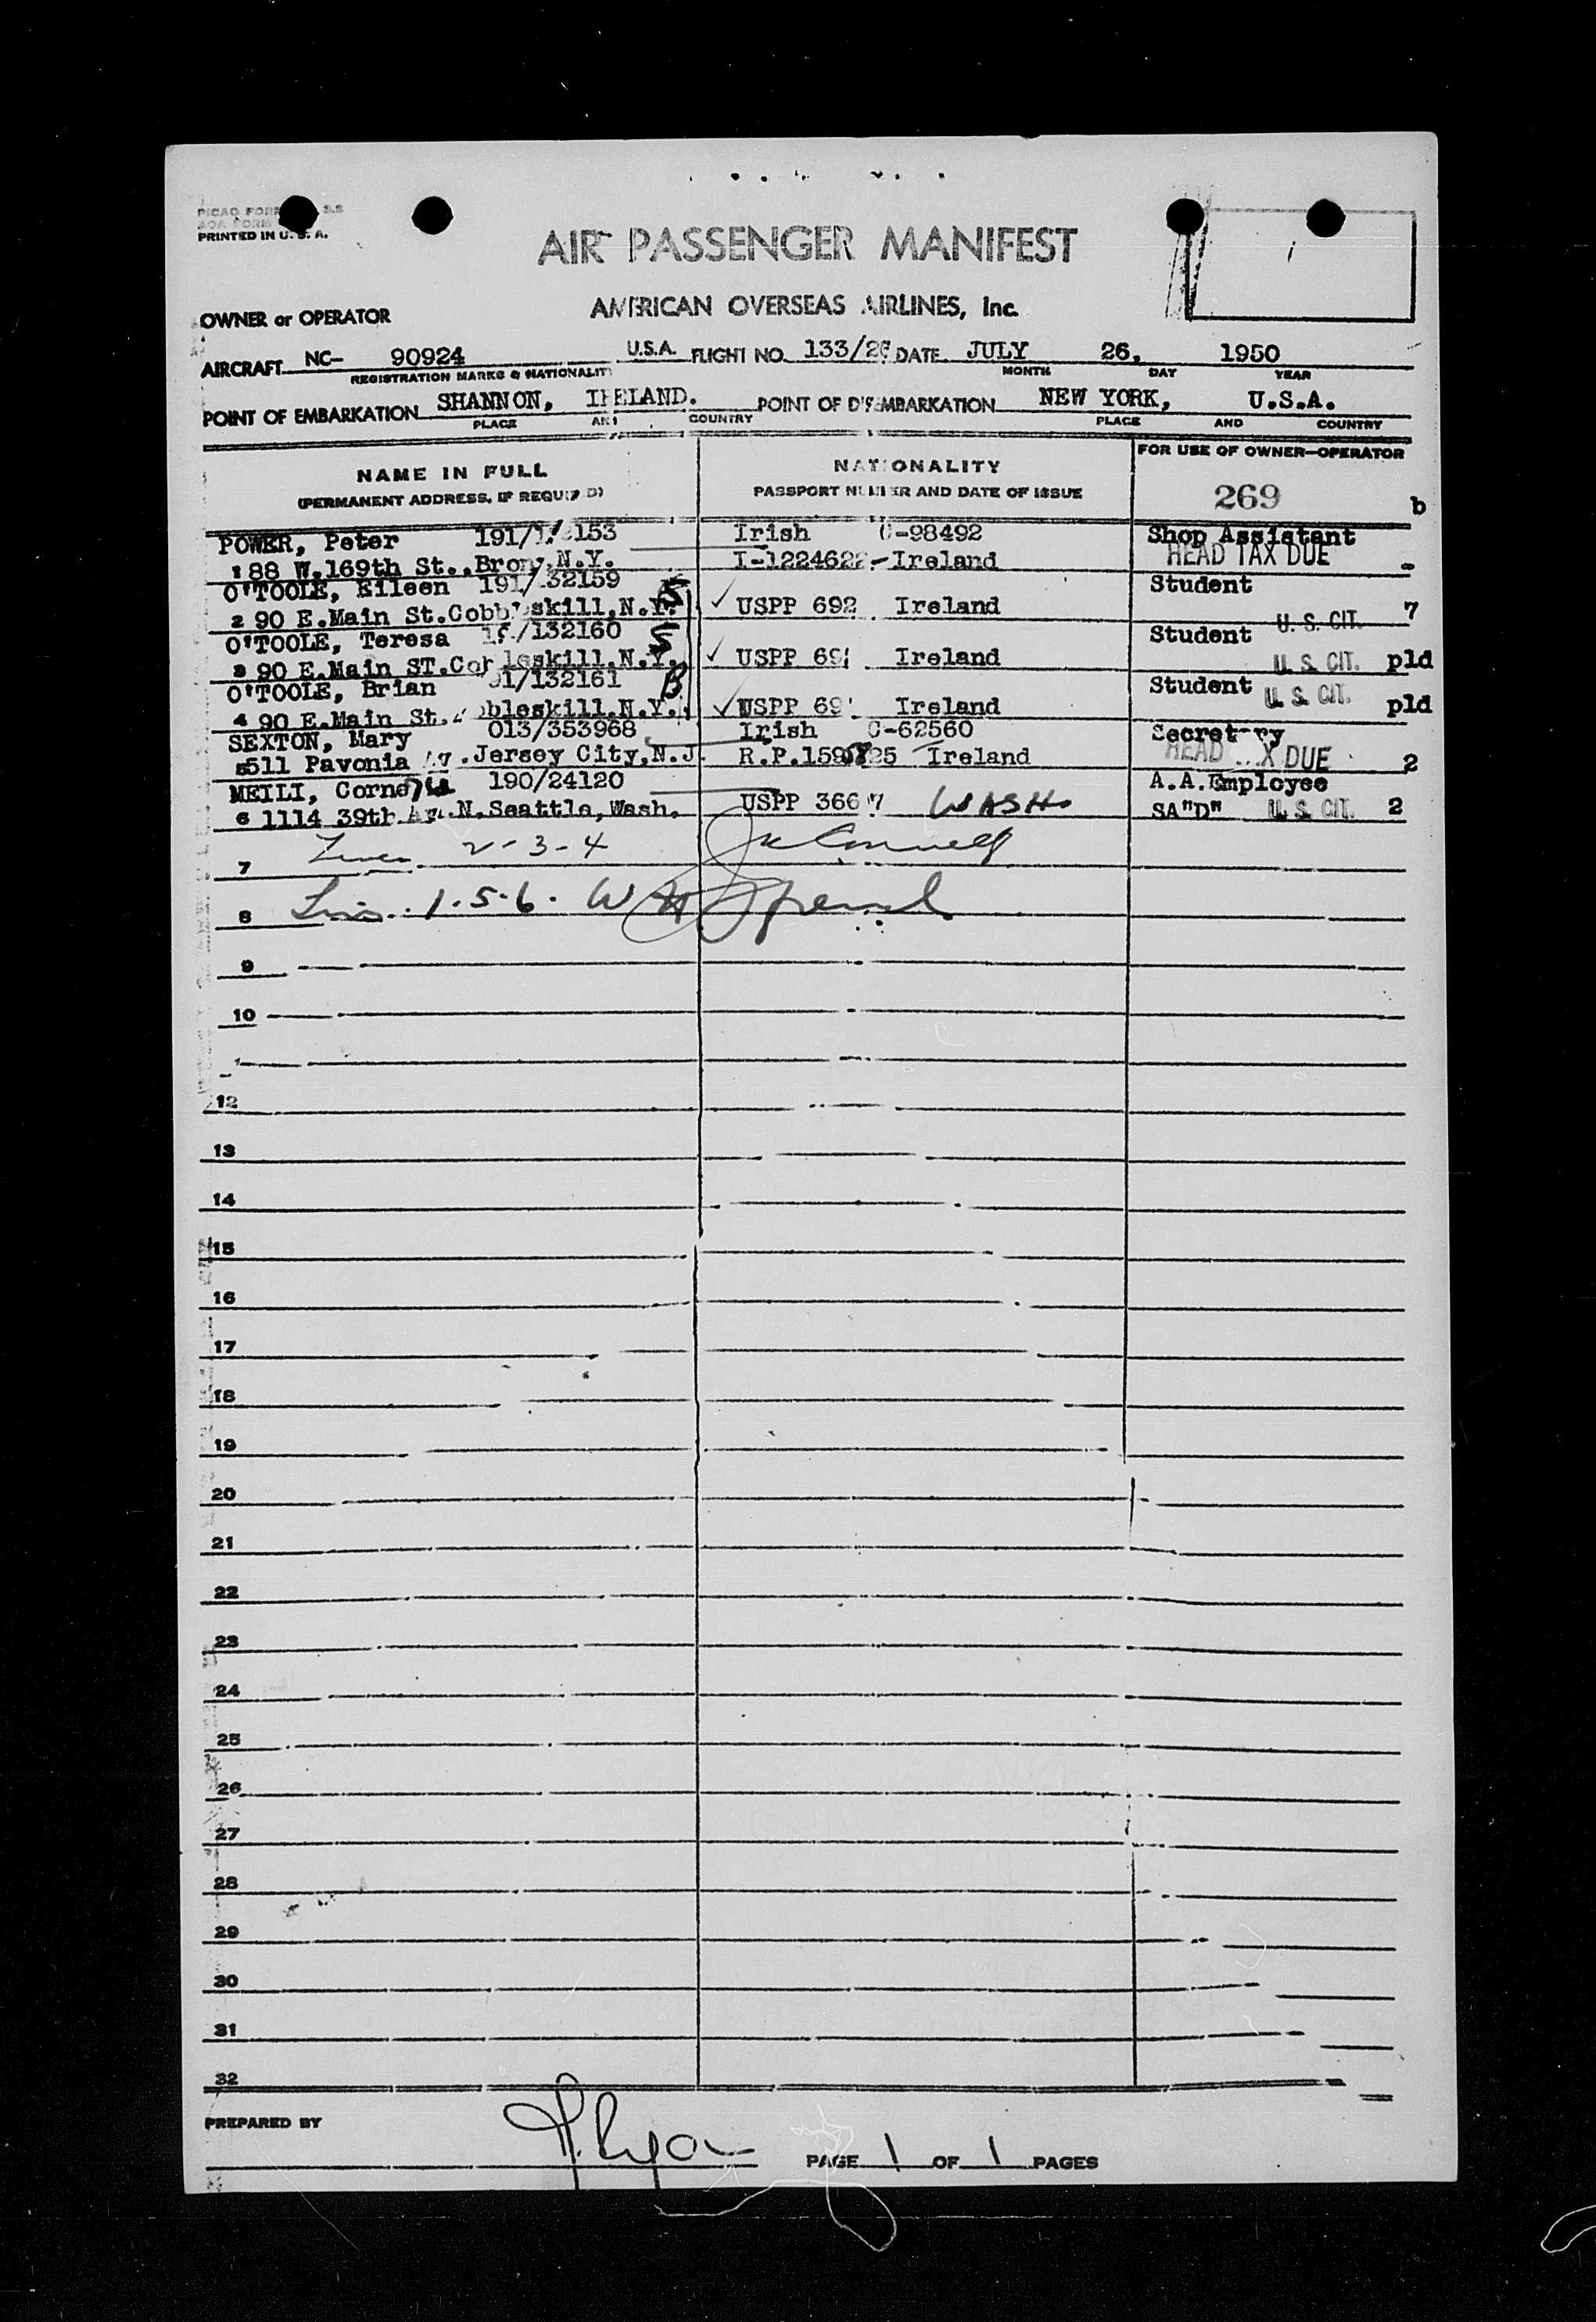 PRINTED IN U. S. A.
AIR PASSENGER MANIFEST
OWNER or OPERATOR AMERICAN OVERSEAS AIRLINES, Inc.
AIRCRAFT NC- 90924 U.S.A. FLIGHT NO. 133/26 DATE JULY 26, 1950
REGISTRATION MARKS & NATIONALITY MONTH DAY YEAR
POINT OF EMBARKATION SHANNON, IRELAND. POINT OF DISEMBARKATION NEW YORK, U.S.A.
PLACE AND COUNTRY PLACE AND COUNTRY
NAME IN FULL NATIONALITY FOR USE OF OWNER-OPERATOR
(PERMANENT ADDRESS, IF REQUIRED) PASSPORT NUMBER AND DATE OF ISSUE 269 b
POWER, Peter Irish C-98492 Shop Assistant
1 88 W.169th St.,Bronx,N.Y. Ireland HEAD TAX DUE
O'TOOLE, Eileen 191/132159 Student
2 90 E.Main St.Cobbleskill,N.Y. USPP 692 Ireland U. S. CIT. 7
O'TOOLE, Teresa 191/132160 S Student
3 90 E.Main ST.Cobleskill,N.Y. USPP Ireland U. S. CIT. pld
O'TOOLE, Brian 191/132161 B Student U. S. CIT.
4 90 E.Main St. Cobleskill,N.Y. USPP Ireland pld
SEXTON, Mary 013/353968 Irish C-62560 Secretary
5 511 Pavonia Av.Jersey City,N.J. R.P. Ireland HEAD TAX DUE 2
MEILI, Cornelia 190/24120 A.A.Employee
6 1114 39th Av.N.Seattle,Wash. USPP WASH. SA"D" U. S. CIT. 2
7 2-3-4
8 1.5.6.
9
10
12
13
14
15
16
17
18
19
20
21
22
23
24
25
26
27
28
29
30
31
32
PREPARED BY
PAGE 1 OF 1 PAGES